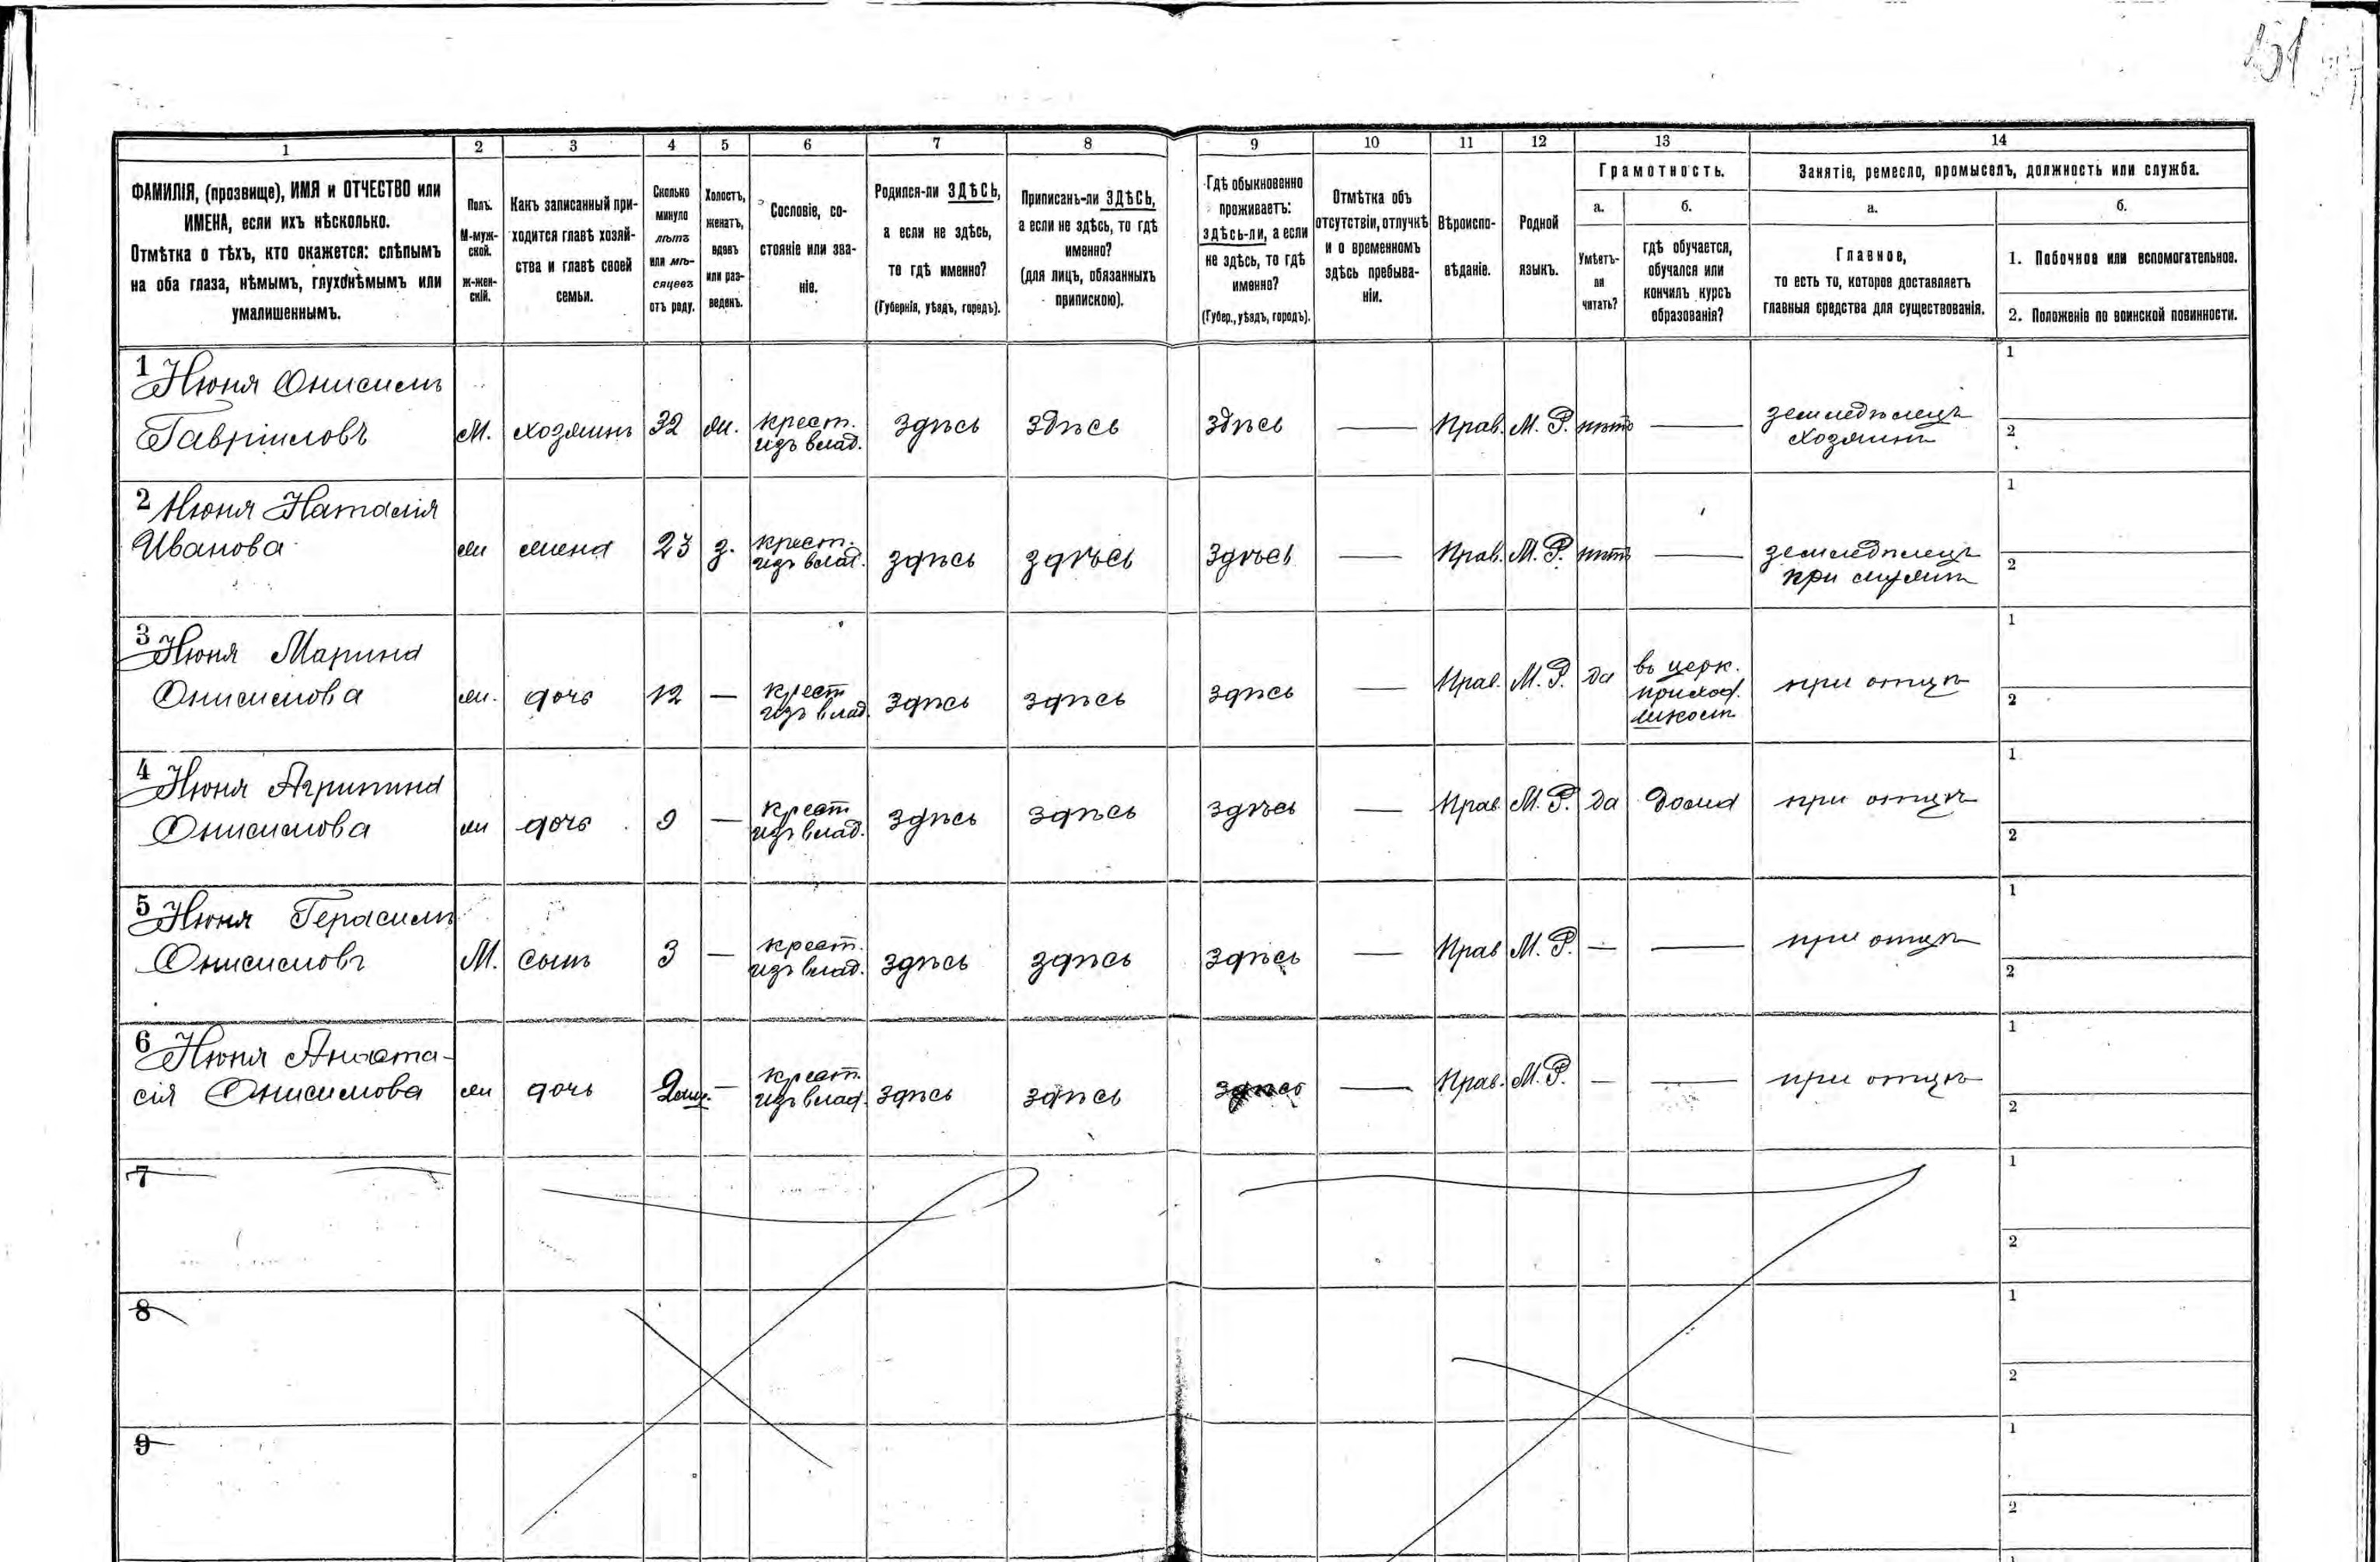 151
1 2 3 4 5 6 7 8 9 10 11 12 13 14
ФАМИЛІЯ, (прозвище), ИМЯ и ОТЧЕСТВО или
ИМЕНА, если ихъ нѣсколько.
Отмѣтка о тѣхъ, кто окажется: слѣпымъ
на оба глаза, нѣмымъ, глухонѣмымъ или
умалишеннымъ.
Полъ.
М-муж-
ской.
ж-жен-
скій.
Какъ записанный при-
ходится главѣ хозяй-
ства и главѣ своей
семьи.
Сколько
минуло
лѣтъ
или мѣ-
сяцевъ
отъ роду.
Холостъ,
женатъ,
вдовъ
или раз-
веденъ.
Сословіе, со-
стояніе или зва-
ніе.
Родился-ли ЗДѢСЬ,
а если не здѣсь,
то гдѣ именно?
(Губернія, уѣздъ, городъ).
Приписанъ-ли ЗДѢСЬ,
а если не здѣсь, то гдѣ
именно?
(для лицъ, обязанныхъ
припискою).
Гдѣ обыкновенно
проживаетъ:
здѣсь-ли, а если
не здѣсь, то гдѣ
именно?
(Губер., уѣздъ, городъ).
Отмѣтка объ
отсутствіи, отлучкѣ
и о временномъ
здѣсь пребыва-
ніи.
Вѣроиспо-
вѣданіе.
Родной
языкъ.
Грамотность.
а.
Умѣетъ-
ли
читать?
б.
гдѣ обучается,
обучался или
кончилъ курсъ
образованія?
Занятіе, ремесло, промыселъ, должность или служба.
а.
Главное,
то есть то, которое доставляетъ
главныя средства для существованія.
б.
1. Побочное или вспомогательное.
2. Положеніе по воинской повинности.
1 Нюня Онисимъ
Гавріиловъ
М. хозяинъ 32 ж. крест.
изъ влад.
здѣсь здѣсь здѣсь — Прав. М. Р. нѣтъ —
земледѣлецъ
хозяинъ
1
2
2 Нюня Наталія
Иванова
ж жена 23 з. крест.
изъ влад.
здѣсь здѣсь здѣсь — Прав. М. Р. нѣтъ —
земледѣлецъ
при мужѣ
1
2
3 Нюня Марина
Онисимова
ж. дочь 12 — крест
изъ влад.
здѣсь здѣсь здѣсь — Прав. М. Р. да
въ церк.
приход.
школѣ
при отцѣ
1
2
4 Нюня Агрипина
Онисимова
ж дочь 9 — крест
изъ влад.
здѣсь здѣсь здѣсь — Прав. М. Р. да дома при отцѣ
1
2
5 Нюня Герасимъ
Онисимовъ
М. сынъ 3 — крест.
изъ влад.
здѣсь здѣсь здѣсь — Прав М. Р. — — при отцѣ
1
2
6 Нюня Анаста-
сія Онисимова
ж дочь — крест.
изъ влад.
здѣсь здѣсь здѣсь — Прав. М. Р. — — при отцѣ
1
2
7
1
2
8
1
2
9
1
2